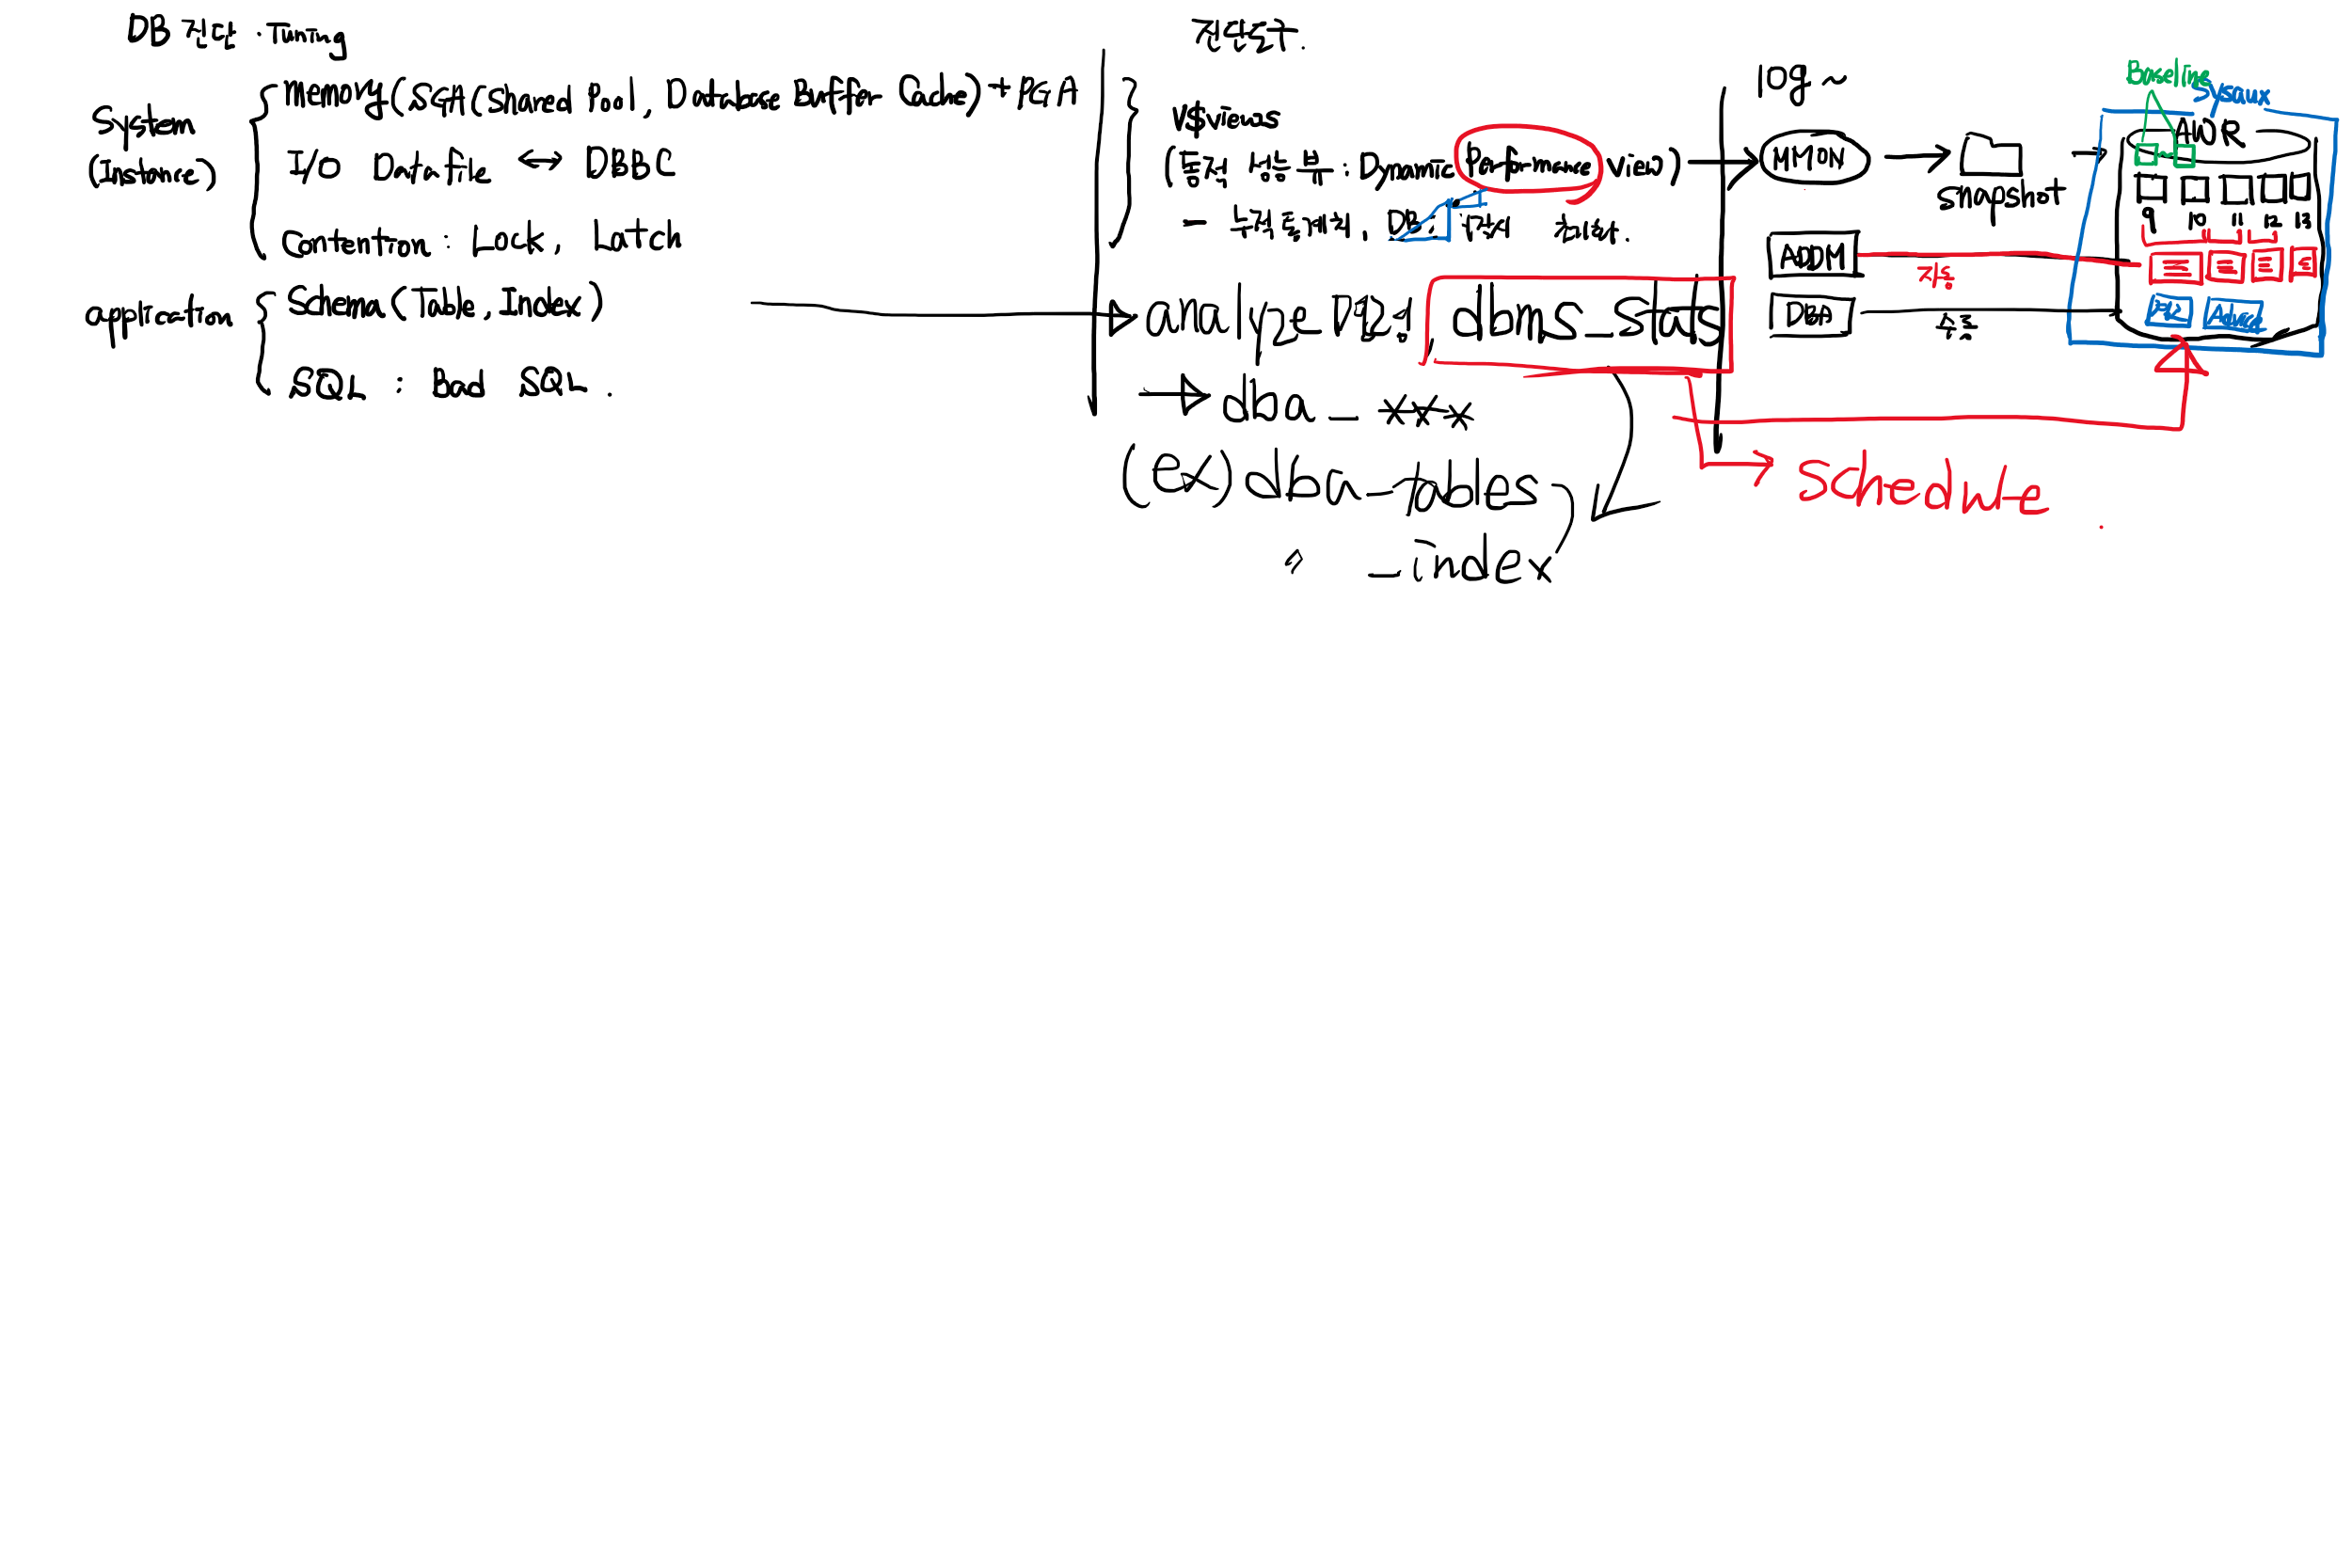 DB 진단 · Tuning
System
(Instance)
Memory(SGA(Shared Pool, Database Buffer Cache)+PGA
I/O Datafile ↔ DBBC
Contention : Lock, Latch
application
Schema (Table, Index)
SQL : Bad SQL.
진단도구.
V$views
(동적 성능 뷰 : Dynamic Performance View)
- 누적통계치, DB
analyze 명령
dbms_stats
→ dba_***
(ex) dba_tables
〃 _index
10g ~
MMON
snapshot
ADDM
자동
DBA
수동
Schedule
Baseline
Sysaux
AWR
9 10 11 12 13
Advice